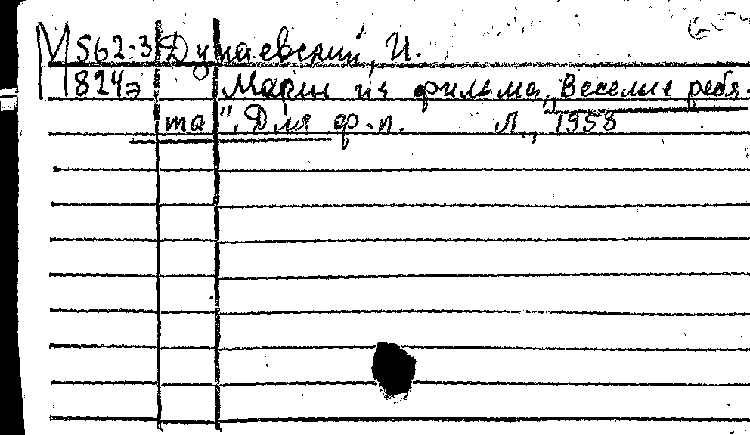 М 562-3 Дунаевский, И.
824э Марш из фильма „Веселые ребя-
та". Для ф-п. Л., 1958